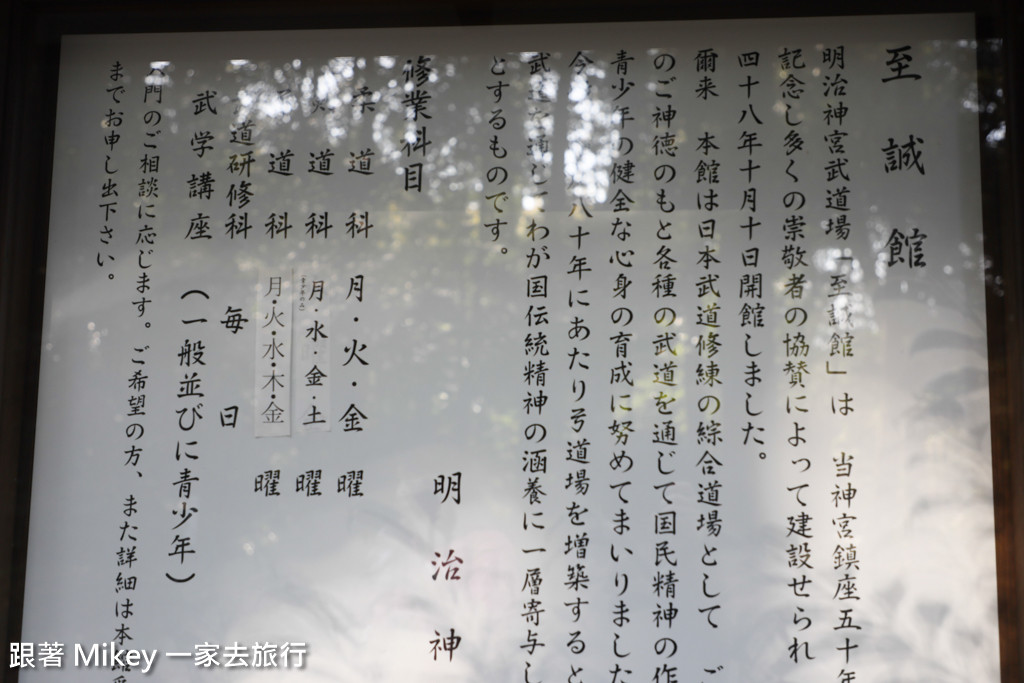 至誠館
明治神宮武道場「至誠館」は 当神宮鎮座五十年
記念し多くの崇敬者の協賛によって建設せられ
四十八年十月十日開館しました。
爾来 本館は日本武道修練の綜合道場として ご
のご神徳のもと各種の武道を通じて国民精神の作
青少年の健全な心身の育成に努めてまいりました
今 八十年にあたり弓道場を増築すると
武道を通じ、わが国伝統精神の涵養に一層寄与し
とするものです。
明治神
修業科目
柔道科 月・火・金曜
道科 月・水・金・土曜
道科 月・火・水・木・金曜
道研修科 毎日
武学講座 (一般並びに青少年)
入門のご相談に応じます。ご希望の方、また詳細は本館
までお申し出下さい。
跟著 Mikey 一家去旅行